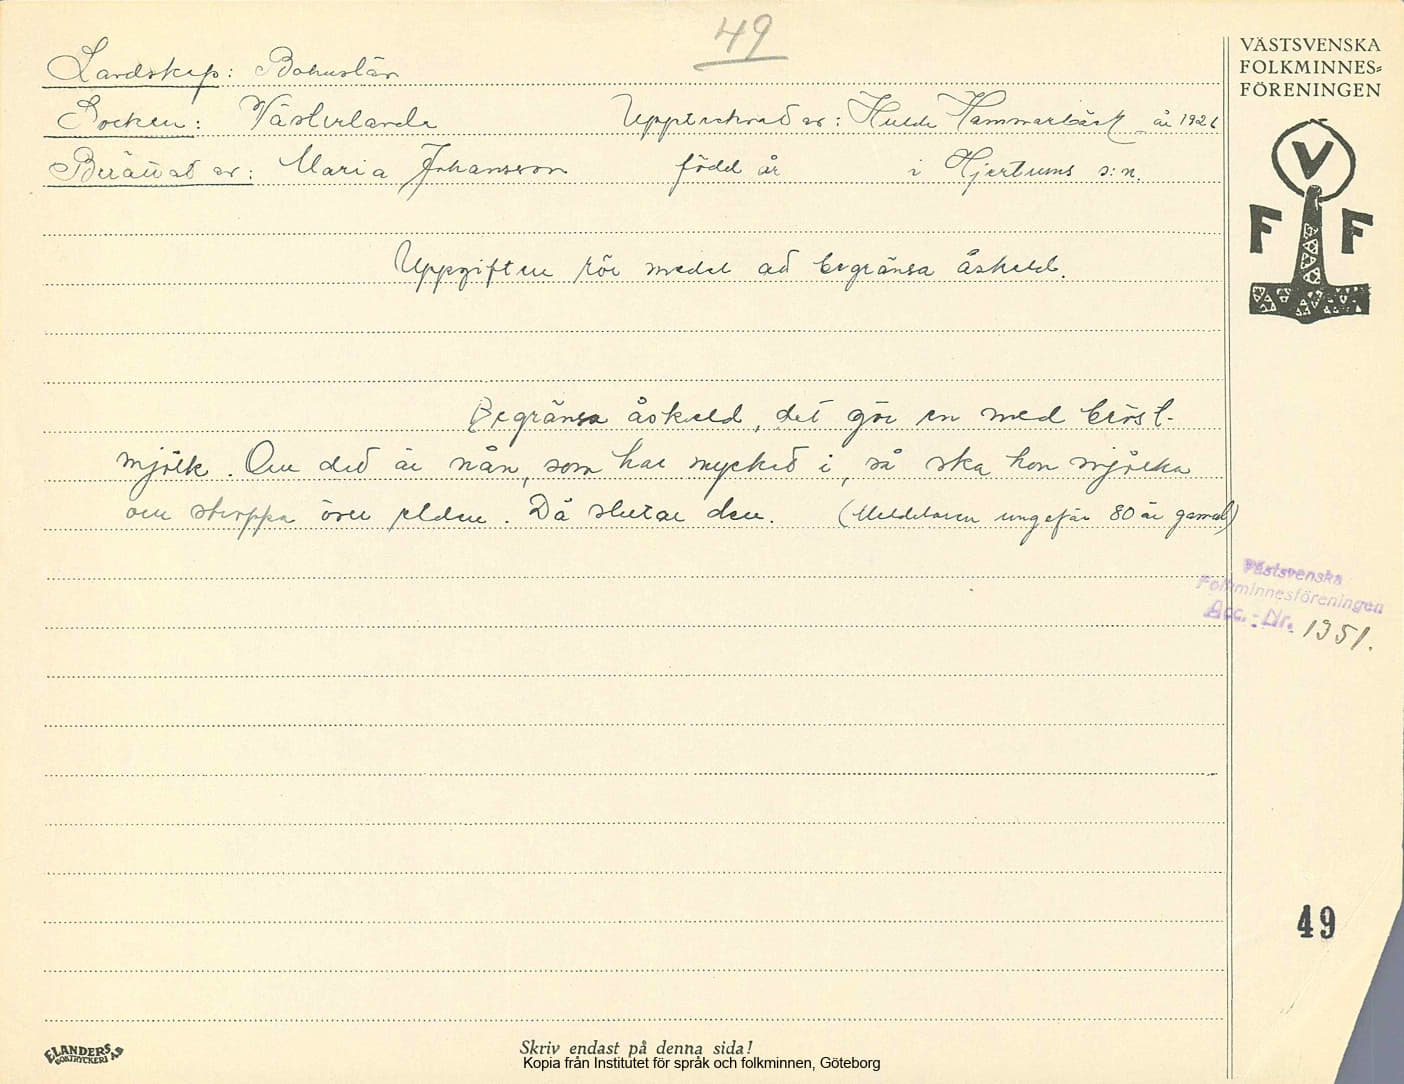 49
Landskap: Bohuslän
Socken: Västerlanda Upptecknad av: Hulda Hammarbäck år 1926
Berättad av: Maria Johansson född år i Hjertums s:n.
Uppgiften rör medel att begränsa åskeld.
Begränsa åskeld, det gör en med bröst-
mjölk. Om det är nån, som har mycket i, så ska hon mjölka
om stoppa över elden. Då slutar den. (Meddelaren ungefär 80 år gammal)
VÄSTSVENSKA
FOLKMINNES=
FÖRENINGEN
V
F F
Västsvenska
Folkminnesföreningen
Acc.-Nr. 1351.
49
ELANDERS
BOKTRYCKERI AB
Skriv endast på denna sida!
Kopia från Institutet för språk och folkminnen, Göteborg